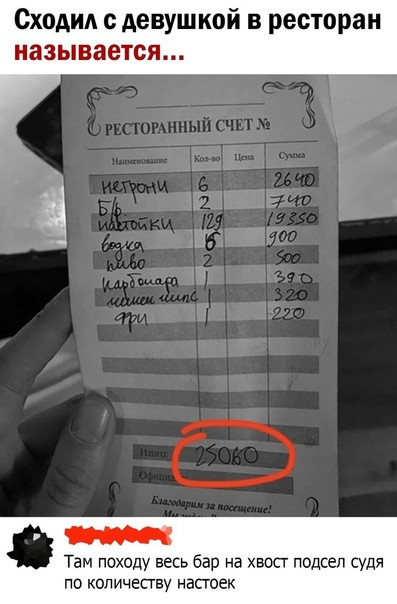 Сходил с девушкой в ресторан
называется...
РЕСТОРАННЫЙ СЧЕТ №
Наименование Кол-во Цена Сумма
негрони 6 2640
Б/р. 2 740
настойки 129 19350
водка 6 900
пиво 2 500
Карбонара 1 390
чипс 1 320
фри 1 220
Итого: 25060
Официант
Благодарим за посещение!
Там походу весь бар на хвост подсел судя
по количеству настоек